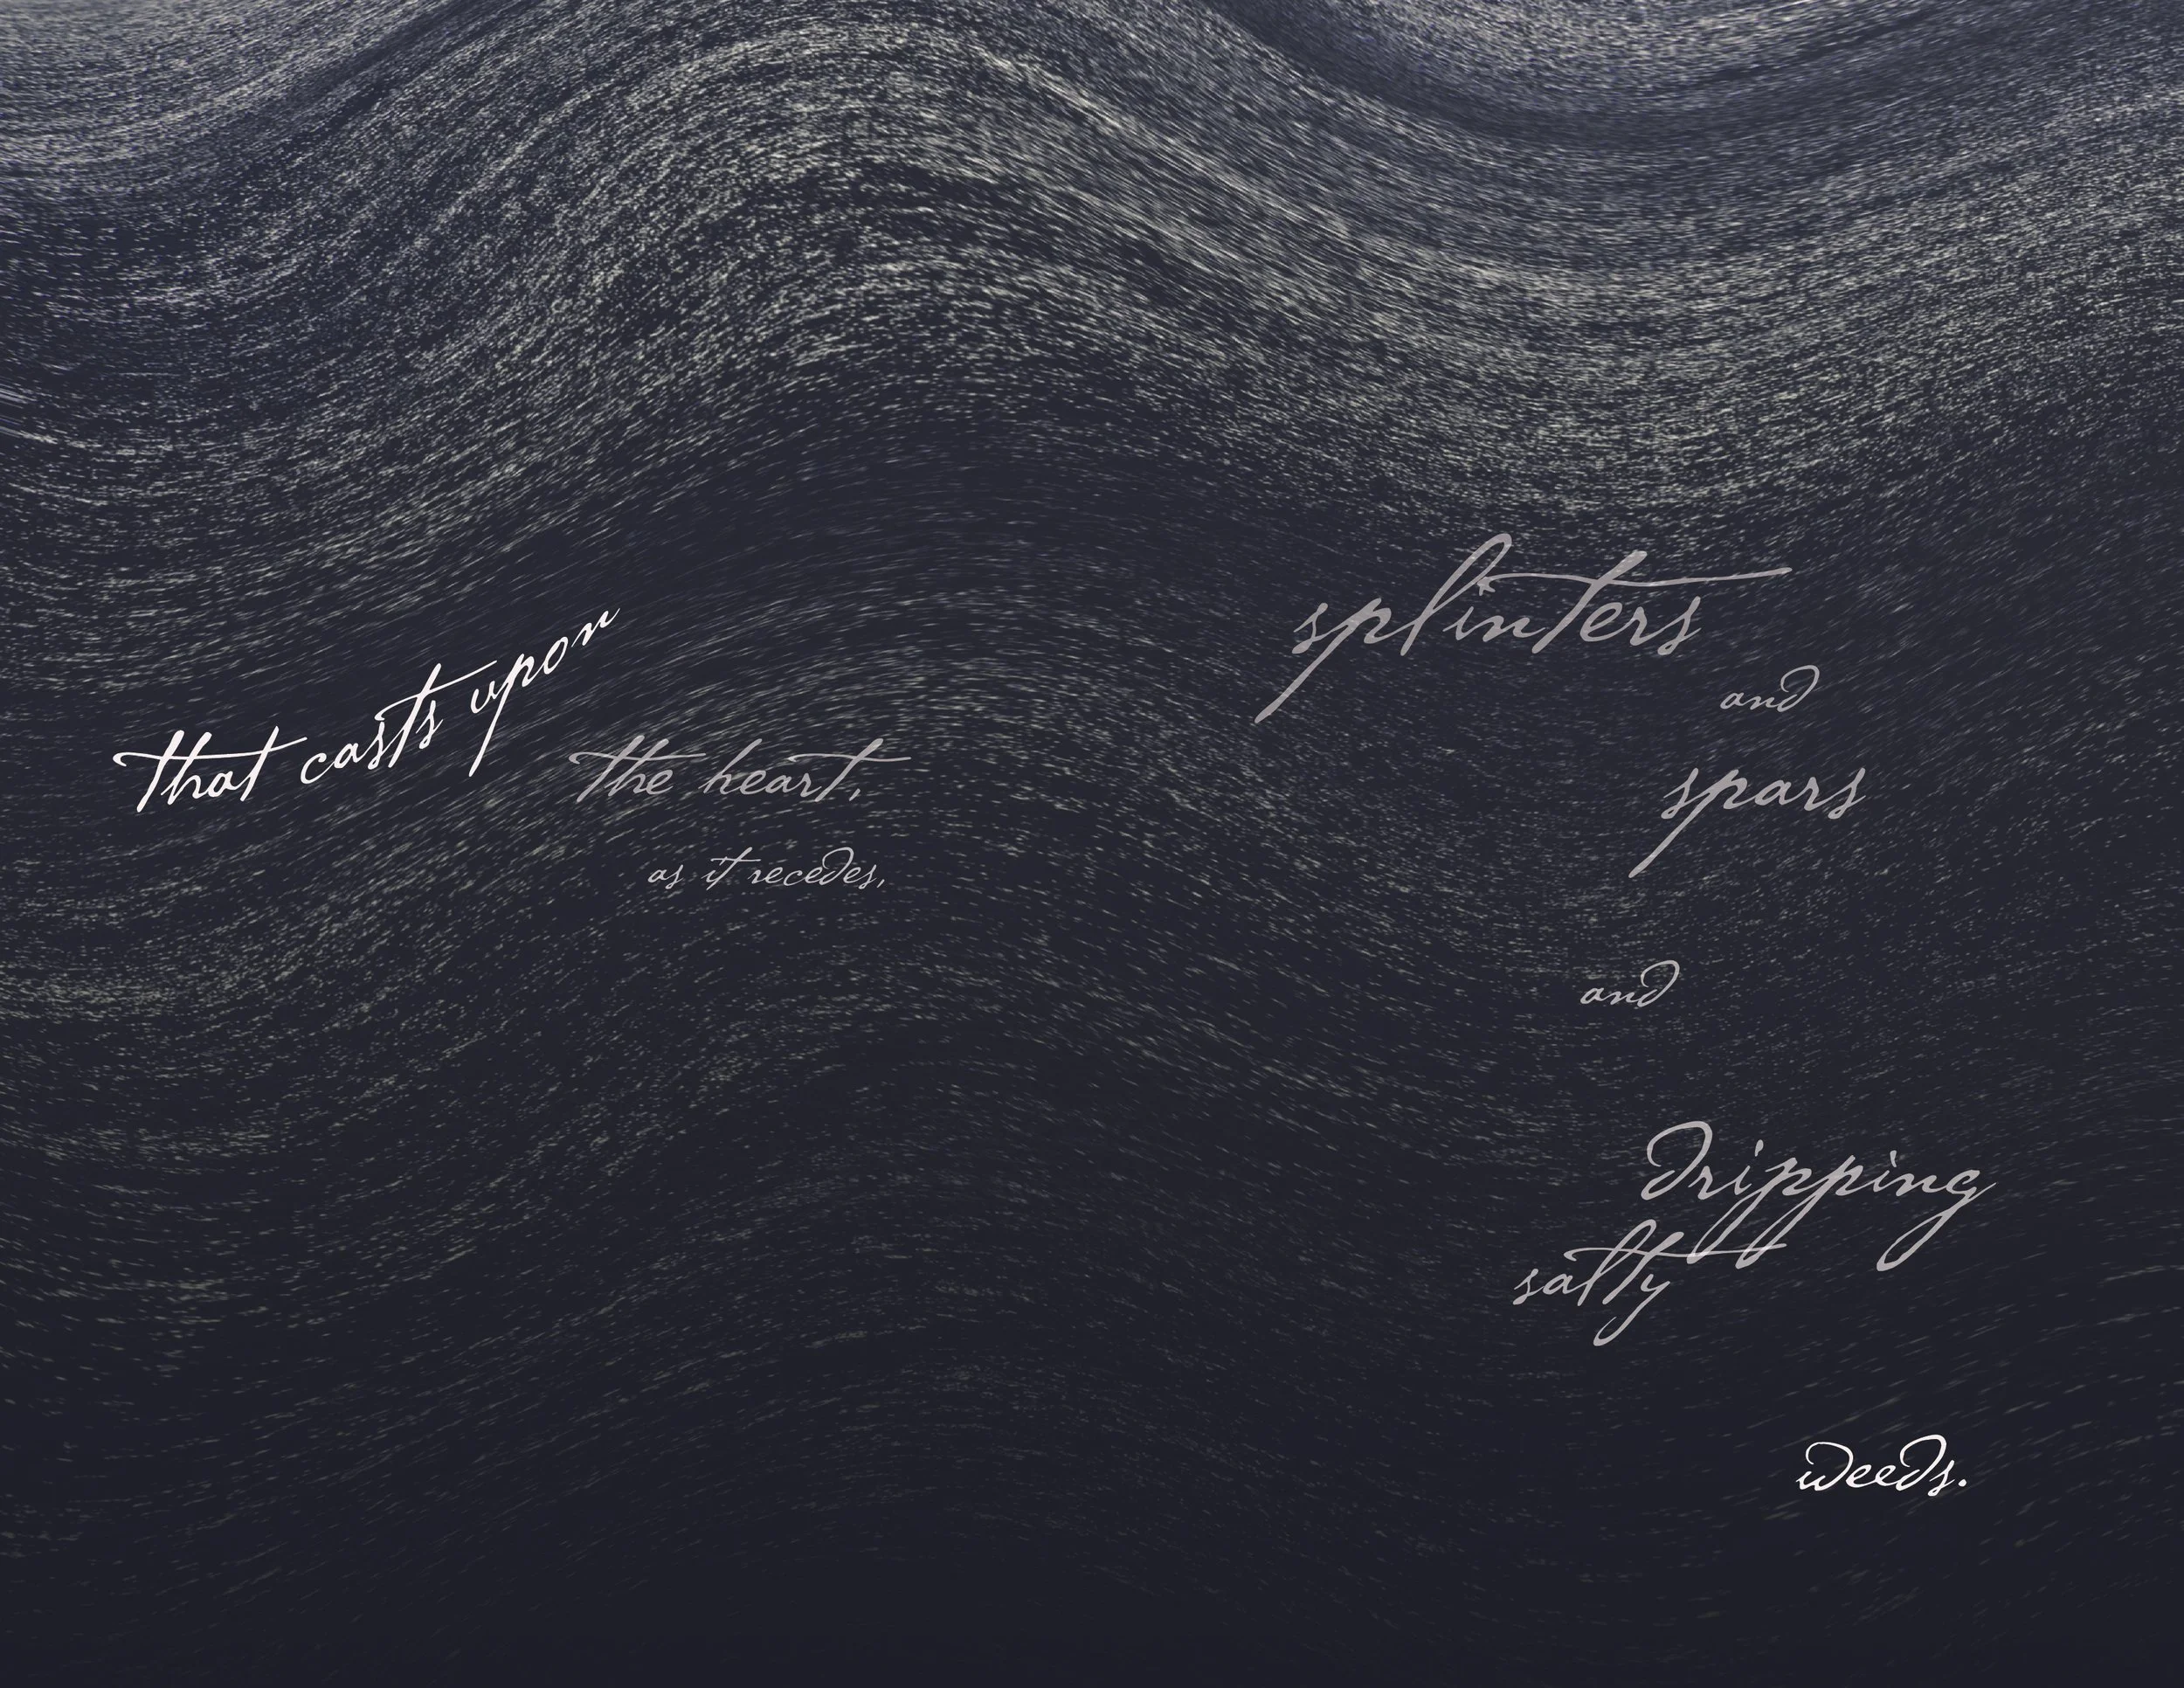 that casts upon
the heart,
as it recedes,
splinters
and
spars
and
dripping
salty
weeds.